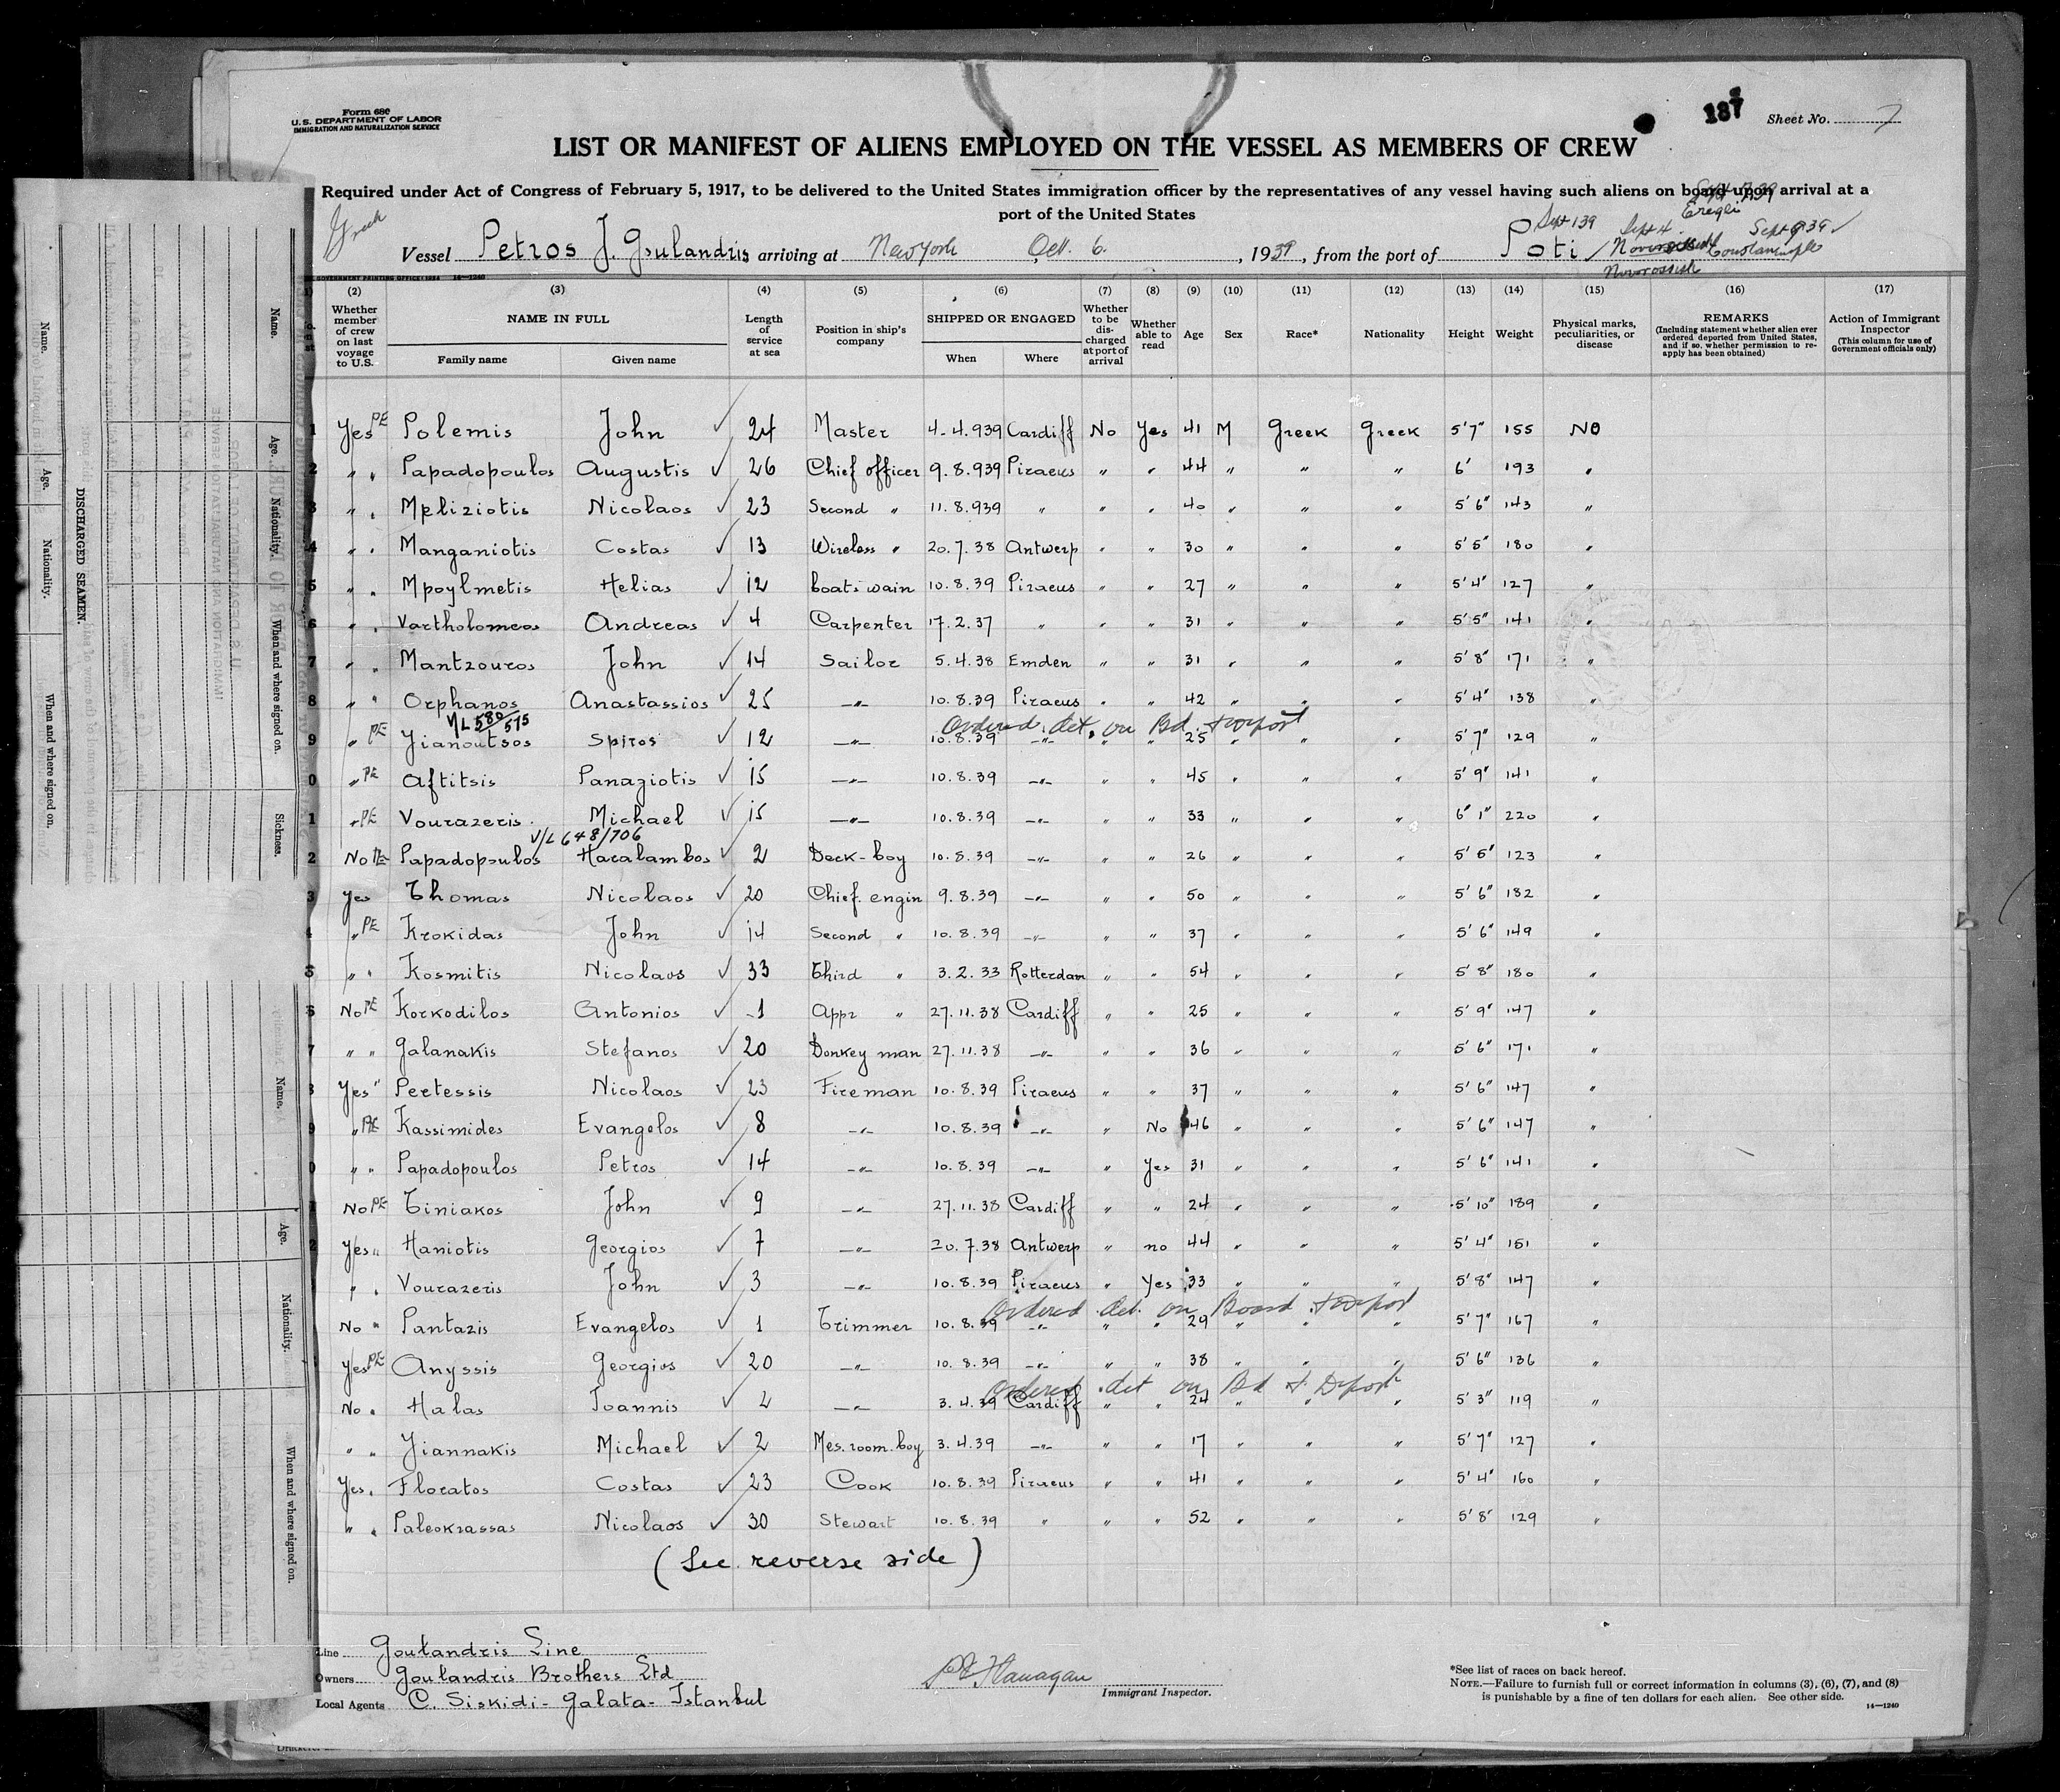 Form 680
U.S. DEPARTMENT OF LABOR
IMMIGRATION AND NATURALIZATION SERVICE
187
Sheet No. 7
LIST OR MANIFEST OF ALIENS EMPLOYED ON THE VESSEL AS MEMBERS OF CREW
Required under Act of Congress of February 5, 1917, to be delivered to the United States immigration officer by the representatives of any vessel having such aliens on board upon arrival at a
port of the United States
Greek
Eregli
Sept 4
Vessel Petros J. Goulandris arriving at New York Oct. 6. , 1939, from the port of Poti / Constantinople
Novorossisk
(2) (3) (4) (5) (6) (7) (8) (9) (10) (11) (12) (13) (14) (15) (16) (17)
Whether member of crew on last voyage to U.S.
NAME IN FULL
Family name Given name
Length of service at sea
Position in ship's company
SHIPPED OR ENGAGED
When Where
Whether to be discharged at port of arrival
Whether able to read
Age Sex Race* Nationality Height Weight
Physical marks, peculiarities, or disease
REMARKS
(Including statement whether alien ever ordered deported from United States, and if so, whether permission to reapply has been obtained)
Action of Immigrant Inspector
(This column for use of Government officials only)
1 Yes PE Polemis John ✓ 24 Master 4.4.939 Cardiff No Yes 41 M Greek Greek 5'7" 155 NO
2 " " Papadopoulos Augustis ✓ 26 Chief officer 9.8.939 Piraeus " " 44 " " " 6' 193 "
3 " " Mpliziotis Nicolaos ✓ 23 Second " 11.8.939 " " " 40 " " " 5'6" 143 "
4 " " Manganiotis Costas ✓ 13 Wireless " 20.7.38 Antwerp " " 30 " " " 5'5" 180 "
5 " " Mpoylmetis Helias ✓ 12 boatswain 10.8.39 Piraeus " " 27 " " " 5'4" 127 "
6 " " Vartholomeos Andreas ✓ 4 Carpenter 17.2.37 " " " 31 " " " 5'5" 141 "
7 " " Mantzouros John ✓ 14 Sailor 5.4.38 Emden " " 31 " " " 5'8" 171 "
8 " " Orphanos Anastassios ✓ 25 —"— 10.8.39 Piraeus " " 42 " " " 5'4" 138 "
V/L 580/575 Ordered det. on Bd. + deport
9 " PE Yianoutsos Spiros ✓ 12 —"— 10.8.39 —"— " " 25 " " " 5'7" 129 "
0 " PE Aftitsis Panagiotis ✓ 15 —"— 10.8.39 —"— " " 45 " " " 5'9" 141 "
1 " PE Vourazeris Michael ✓ 15 —"— 10.8.39 —"— " " 33 " " " 6'1" 220 "
V/L 648/706
2 No PE Papadopoulos Haralambos ✓ 2 Deck-boy 10.8.39 —"— " " 26 " " " 5'5" 123 "
3 Yes Thomas Nicolaos ✓ 20 Chief engin 9.8.39 —"— " " 50 " " " 5'6" 182 "
4 " PE Krokidas John ✓ 14 Second " 10.8.39 —"— " " 37 " " " 5'6" 149 "
5 " " Kosmitis Nicolaos ✓ 33 Third " 3.2.33 Rotterdam " " 54 " " " 5'8" 180 "
6 No PE Korkodilos Antonios ✓ 1 Appr " 27.11.38 Cardiff " " 25 " " " 5'9" 147 "
7 " " Galanakis Stefanos ✓ 20 Donkey man 27.11.38 —"— " " 36 " " " 5'6" 171 "
8 Yes " Pertessis Nicolaos ✓ 23 Fireman 10.8.39 Piraeus " " 37 " " " 5'6" 147 "
9 " PE Kassimides Evangelos ✓ 8 —"— 10.8.39 —"— " No 46 " " " 5'6" 147 "
0 " " Papadopoulos Petros ✓ 14 —"— 10.8.39 —"— " Yes 31 " " " 5'6" 141 "
1 No PE Tiniakos John ✓ 9 —"— 27.11.38 Cardiff " " 24 " " " 5'10" 189 "
2 Yes " Haniotis Georgios ✓ 7 —"— 20.7.38 Antwerp " no 44 " " " 5'4" 151 "
" " Vourazeris John ✓ 3 —"— 10.8.39 Piraeus " Yes 33 " " " 5'8" 147 "
Ordered det. on Board + deport
No " Pantazis Evangelos ✓ 1 Trimmer 10.8.39 —"— " " 29 " " " 5'7" 167 "
Yes PE Anyssis Georgios ✓ 20 —"— 10.8.39 —"— " " 38 " " " 5'6" 136 "
Ordered det on Bd & Deport
No " Halas Ioannis ✓ 2 —"— 3.4.39 Cardiff " " 24 " " " 5'3" 119 "
" " Yiannakis Michael ✓ 2 Mes.room.boy 3.4.39 —"— " " 17 " " " 5'7" 127 "
Yes " Floratos Costas ✓ 23 Cook 10.8.39 Piraeus " " 41 " " " 5'4" 160 "
" " Paleokrassas Nicolaos ✓ 30 Stewart 10.8.39 " " " 52 " " " 5'8" 129 "
(See reverse side)
Line Goulandris Line
Owners Goulandris Brothers Ltd
Local Agents C. Siskidi - Galata - Istanbul
Flanagan
Immigrant Inspector.
*See list of races on back hereof.
NOTE.—Failure to furnish full or correct information in columns (3), (6), (7), and (8)
is punishable by a fine of ten dollars for each alien. See other side.
14—1240
DISCHARGED SEAMEN.
Name. Age. Nationality. When and where signed on. Sickness.
Name. Age. Nationality. When and where signed on.
Name. Age. Nationality. When and where signed on.